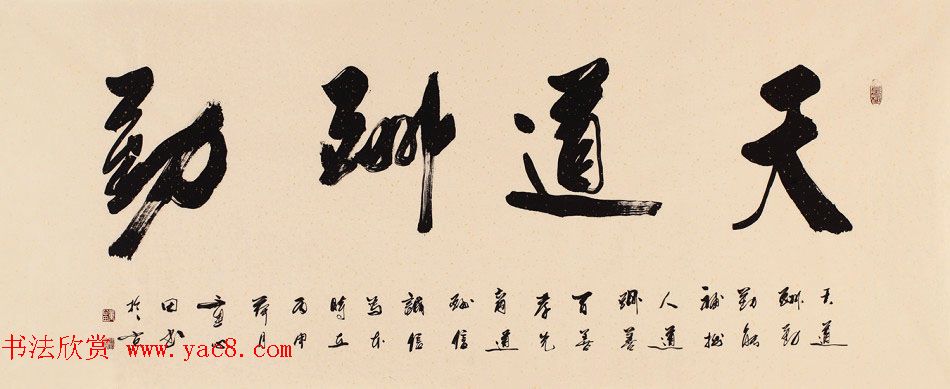 天道酬勤
天道
酬勤
勤能
補拙
人道
酬善
百善
孝先
商道
酬信
誠信
為本
時
丙申
月
心
田書
於京
书法欣赏 www.yac8.com